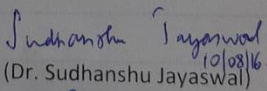 Sudhanshu Jayaswal
10/08/16
(Dr. Sudhanshu Jayaswal)